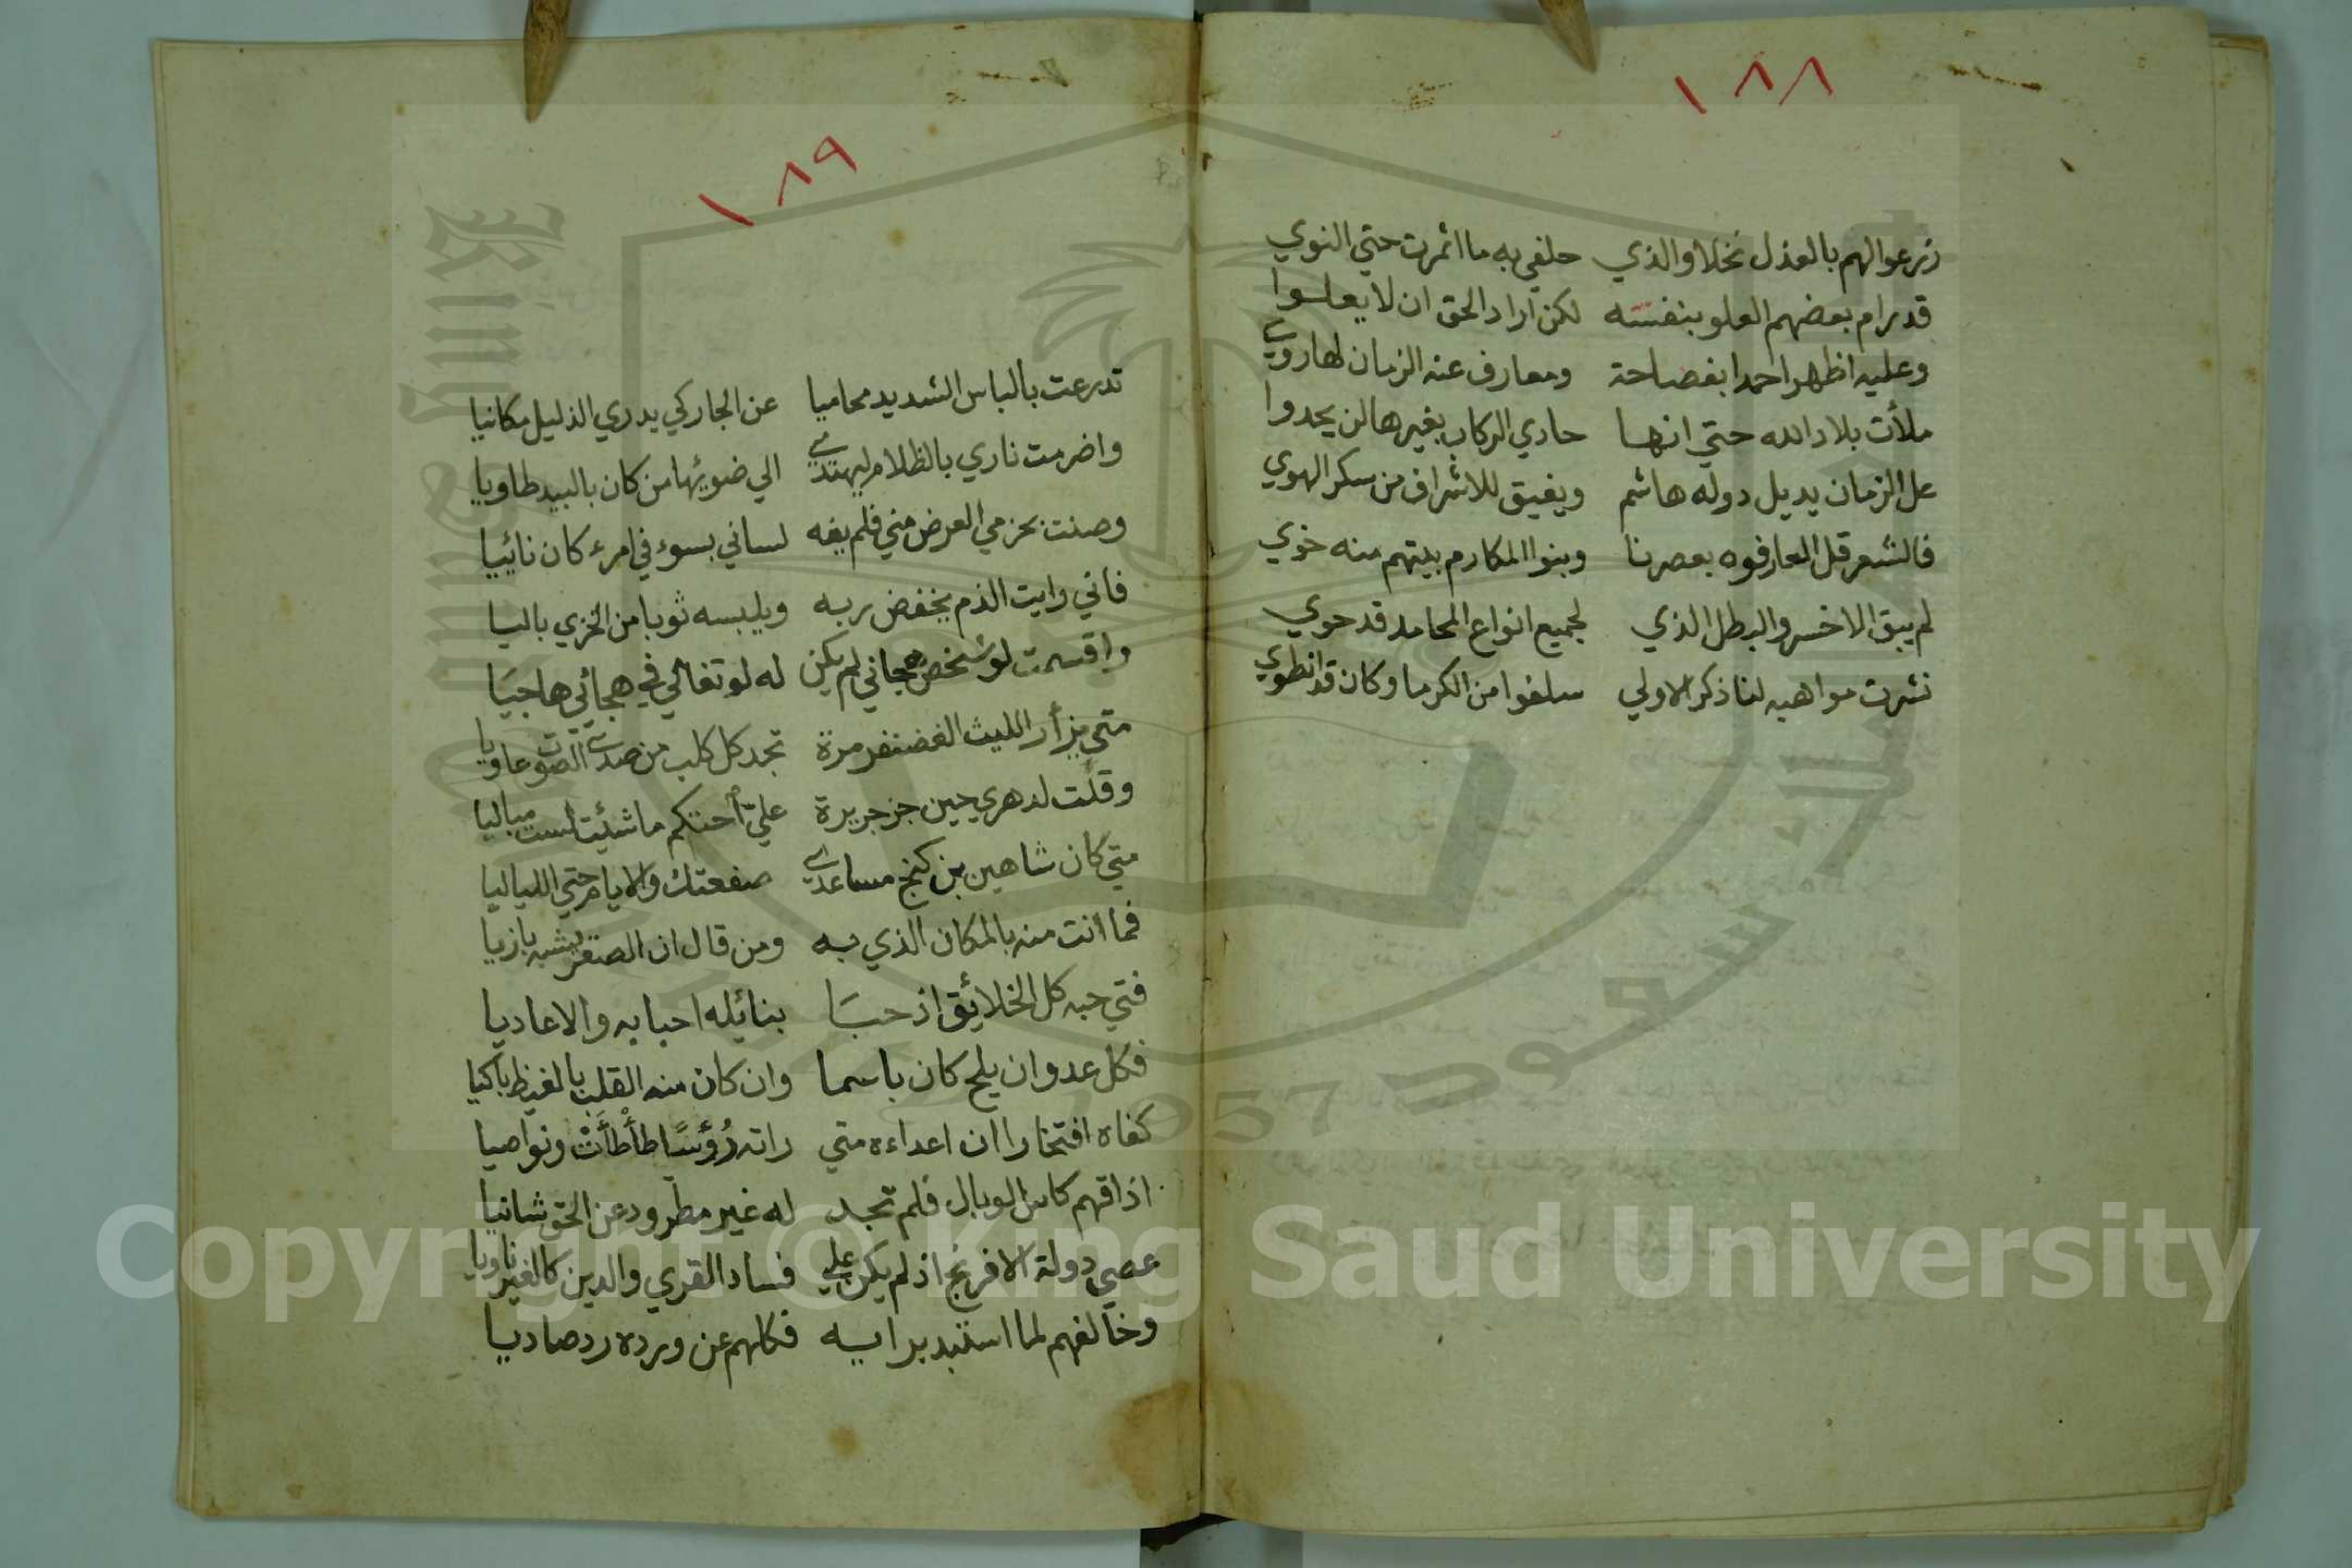 ١٨٨
زرعوا لهم بالعذل نخلا والذي حلفي به ما اثمرت حتي النوي
قد رام بعضهم العلو بنفسه لكن اراد الحق ان لا يعلوا
وعليه اظهر احمدا بفصاحة ومعارف عنه الزمان لها روي
ملأت بلاد الله حتي انها حادي الركاب بغيرها لن يحدوا
عل الزمان يديل دوله هاشم ويفيق للاشراف من سكر الهوي
فالشعر قل العارفوه بعصرنا وبنوا المكارم بيتهم منه خوي
لم يبق الا خسرو البطل الذي لجميع انواع المحامد قد حوي
نشرت مواهبه لنا ذكر الاولي سلفوا من الكرما وكان قد انطوي
١٨٩
تدرعت بالباس الشديد محاميا عن الجار كي يدري الذليل مكانيا
واضرمت ناري بالظلام ليهتدي الي ضوئها من كان بالبيد طاويا
وصنت بحزمي العرض مني فلم يفه لساني بسوء في امرء كان نائيا
فاني رايت الذم يخفض ربه ويلبسه ثوبا من الخزي باليا
واقسمت لو شخص هجاني لم يكن له لو تغالي في هجائي هاجيا
متي يزأر الليث الغضنفر مرة تجد كل كلب من صدي الصوت عاويا
وقلت لدهري حين جز جريرة علي احتكم ما شئت لست مباليا
متي كان شاهين بن كنج مساعدي صفعتك والايام حتي اللياليا
فما انت منه بالمكان الذي به ومن قال ان الصقر يشبه بازيا
فتي حبه كل الخلائق اذ حبا بنائله احبابه والاعاديا
فكل عدو ان يلح كان باسما وان كان منه القلب بالغيظ باكيا
كفاه افتخارا ان اعداءه متي راته رُؤسًا طأطأتْ ونواصيا
اذاقهم كاس الوبال فلم تجد له غير مطرود عن الحق شانيا
عصي دولة الافرنج اذ لم يكن علي فساد القري والدين كالغير ناويا
وخالفهم لما استبد برايه فكلهم عن ورده رد صاديا
Copyright © King Saud University
1957